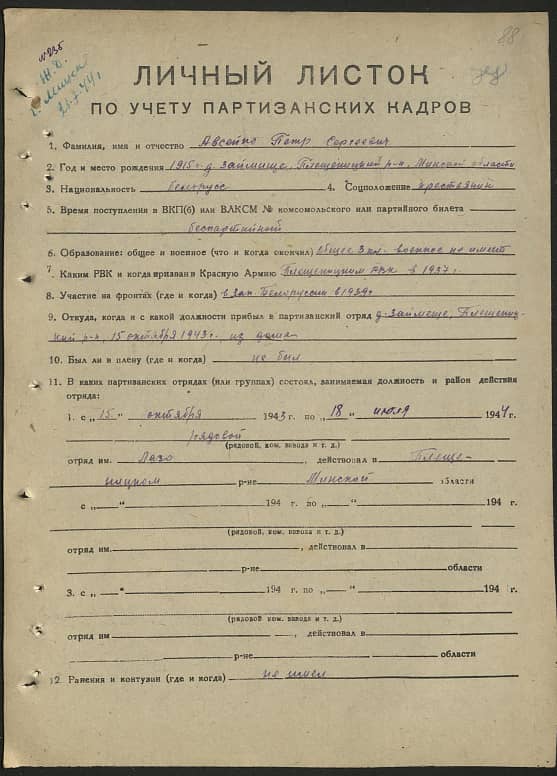 №235
г. Минск
88
ЛИЧНЫЙ ЛИСТОК
ПО УЧЕТУ ПАРТИЗАНСКИХ КАДРОВ
1. Фамилия, имя и отчество Авсейко Петр Сергеевич
2. Год и место рождения 1915 г. д. Займище, Плещеницкий р-н, Минской области
3. Национальность белорусс 4. Соцположение крестьянин
5. Время поступления в ВКП(б) или ВЛКСМ № комсомольского или партийного билета
беспартийный
6. Образование: общее и военное (что и когда окончил) общее 3 кл. военное не имеет
7. Каким РВК и когда призван в Красную Армию Плещеницким РВК в 1937 г.
8. Участие на фронтах (где и когда) в Зап. Белоруссии в 1939 г
9. Откуда, когда и с какой должности прибыл в партизанский отряд д. Займище, Плещениц-
кий р-н, 15 октября 1943 г. из дома
10. Был ли в плену (где и когда) не был
11. В каких партизанских отрядах (или группах) состоял, занимаемая должность и район действия
отряда:
1. с „15“ октября 1943 г. по „18“ июля 1944 г.
рядовой
(рядовой, ком. взвода и т. д.)
отряд им. Лазо, действовал в Плеще-
ницком р-не Минской области
с „ “ 194 г. по „ “ 194 г.
(рядовой, ком. взвода и т. д.)
отряд им. , действовал в
р-не области
3. с „ “ 194 г. по „ “ 194 г.
(рядовой, ком. взвода и т. д.)
отряд им , действовал в
р-не области
12. Ранения и контузии (где и когда) не имел